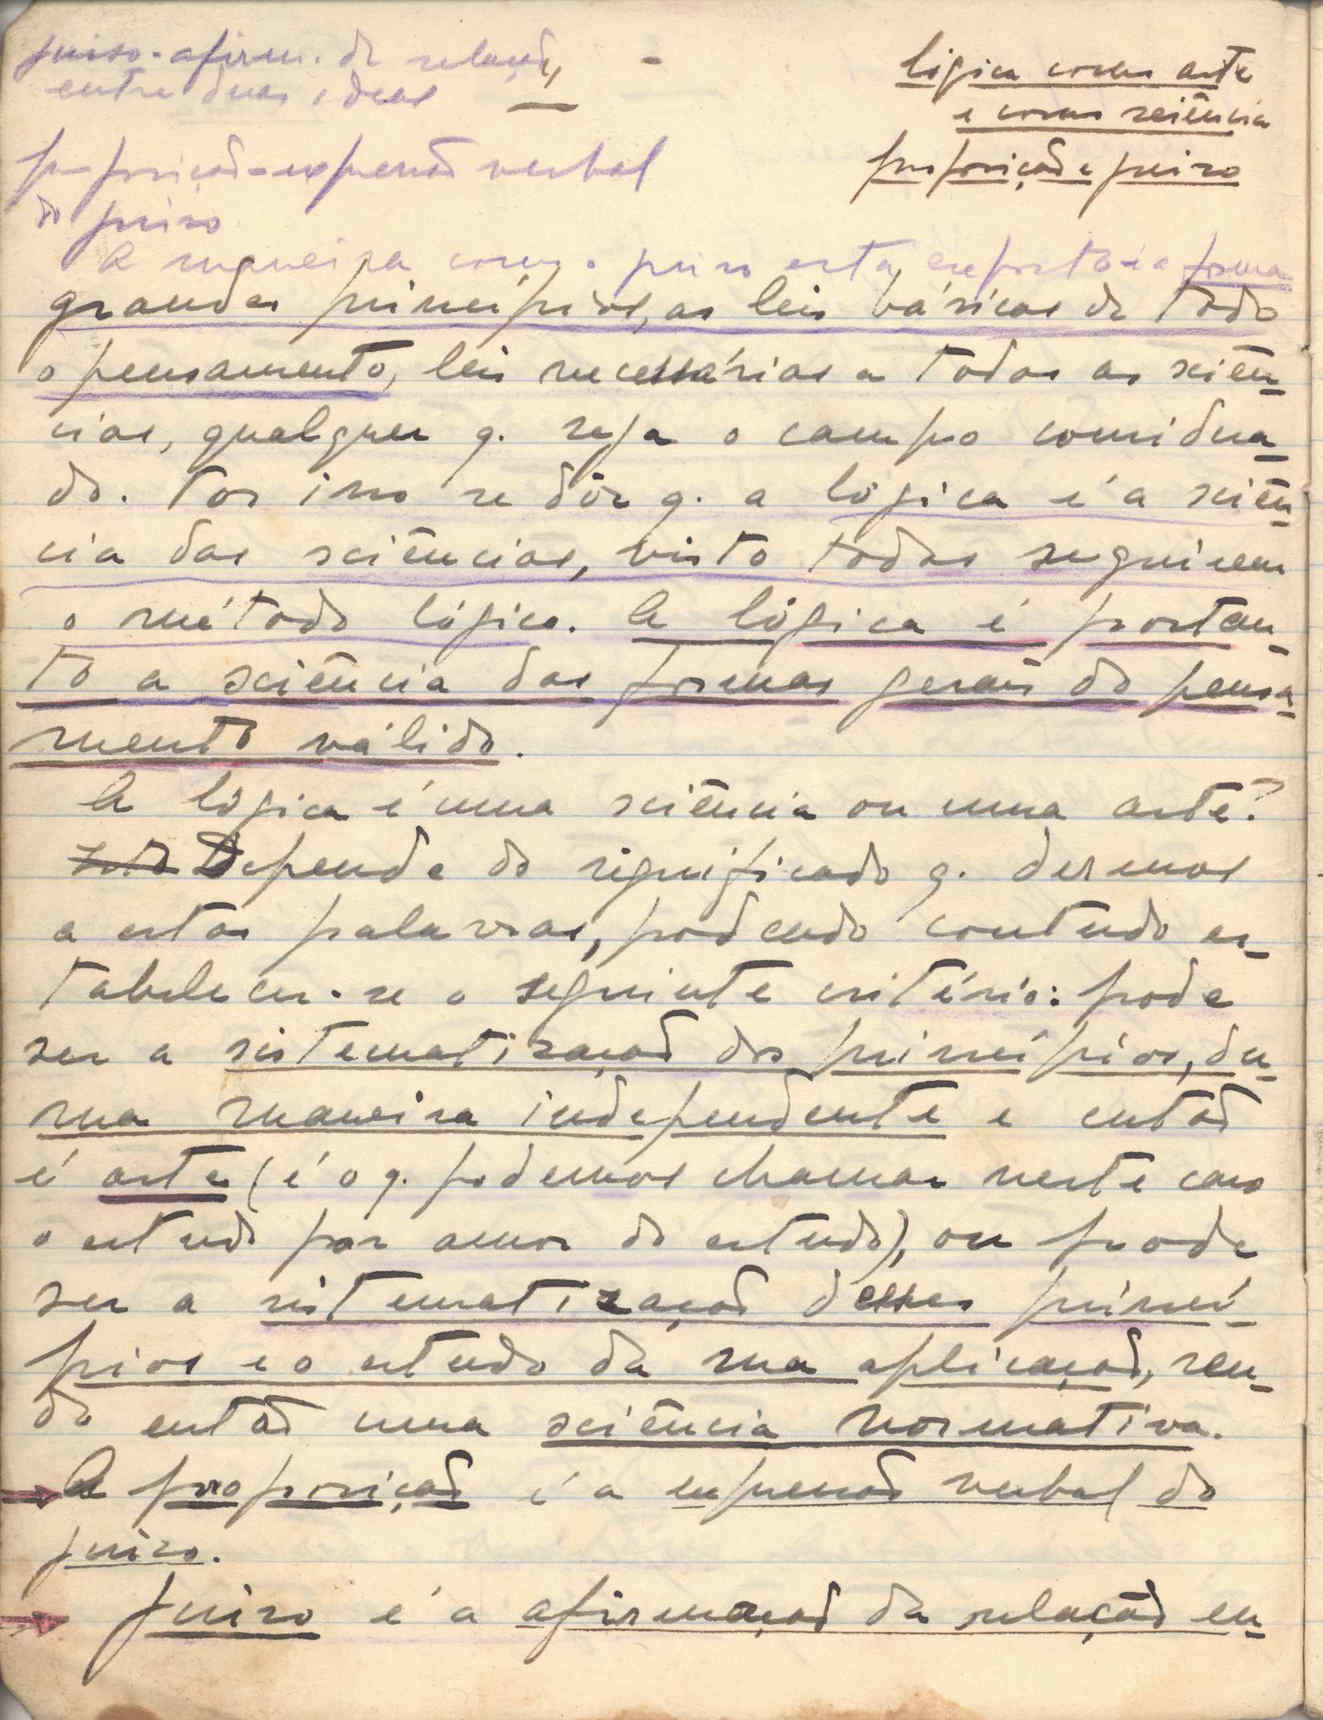 juiso - afirm. da relação
entre duas ideas
lógica como arte
e como sciência
proposição e juizo
proposição - expressão verbal
do juizo
A maneira como o juizo está exposto é a forma
grandes princípios, as leis básicas de todo
o pensamento, leis necessárias a todas as sciên-
cias, qualquer q. seja o campo considera-
do. Por isso se diz q. a lógica é a sciên-
cia das sciências, visto todas seguirem
o método lógico. A lógica é portan-
to a sciência das formas gerais do pensa-
mento válido.
A lógica é uma sciência ou uma arte?
Depende do significado q. dermos
a estas palavras, podendo contudo es-
tabelecer-se o seguinte critério: pode
ser a sistematização dos princípios, du-
ma maneira independente e então
é arte (é o q. podemos chamar neste caso
o estudo por amor do estudo), ou pode
ser a sistematização desses princí-
pios e o estudo da sua aplicação, sen-
do então uma sciência normativa.
A proposição é a expressão verbal do
juizo.
Juizo é a afirmação da relação en-